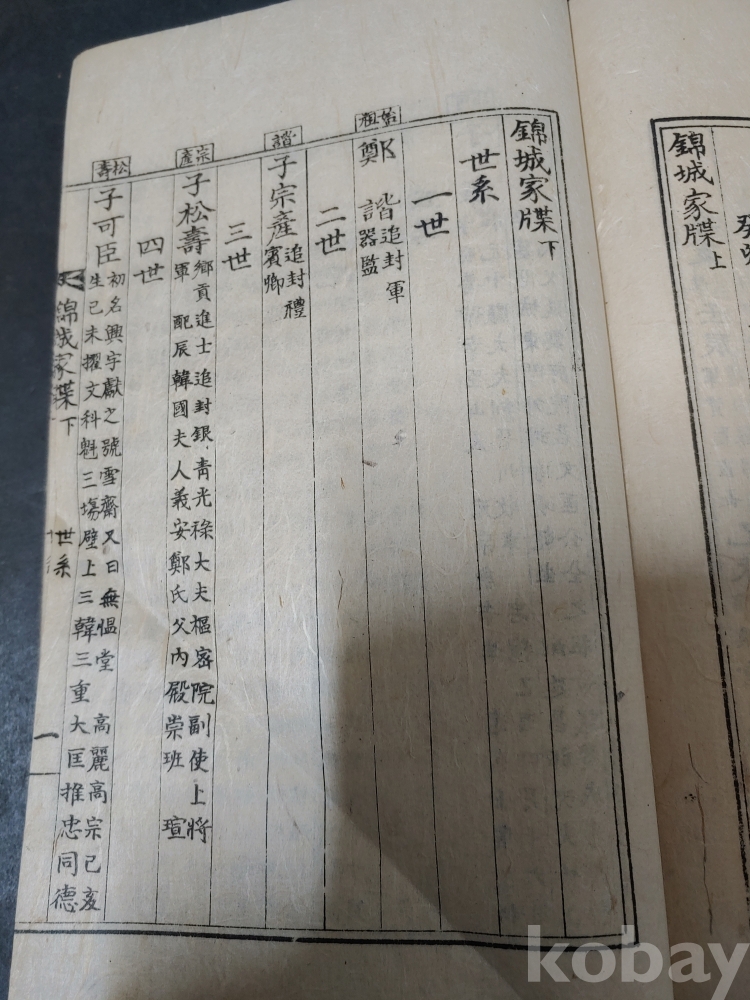 錦城家牒上
錦城家牒下
世系
一世
始祖
鄭 諧追封軍
器監
二世
諧
子宗產追封禮
賓卿
三世
宗產
子松壽鄉貢進士追封銀青光祿大夫樞密院副使上將
軍 配辰韓國夫人義安鄭氏父內殿崇班 瑄
四世
松壽
子可臣初名興字獻之號雪齋又曰無慍堂 高麗高宗己亥
生己未擢文科魁三場壁上三韓三重大匡推忠同德
錦城家牒下 世系 一
kobay